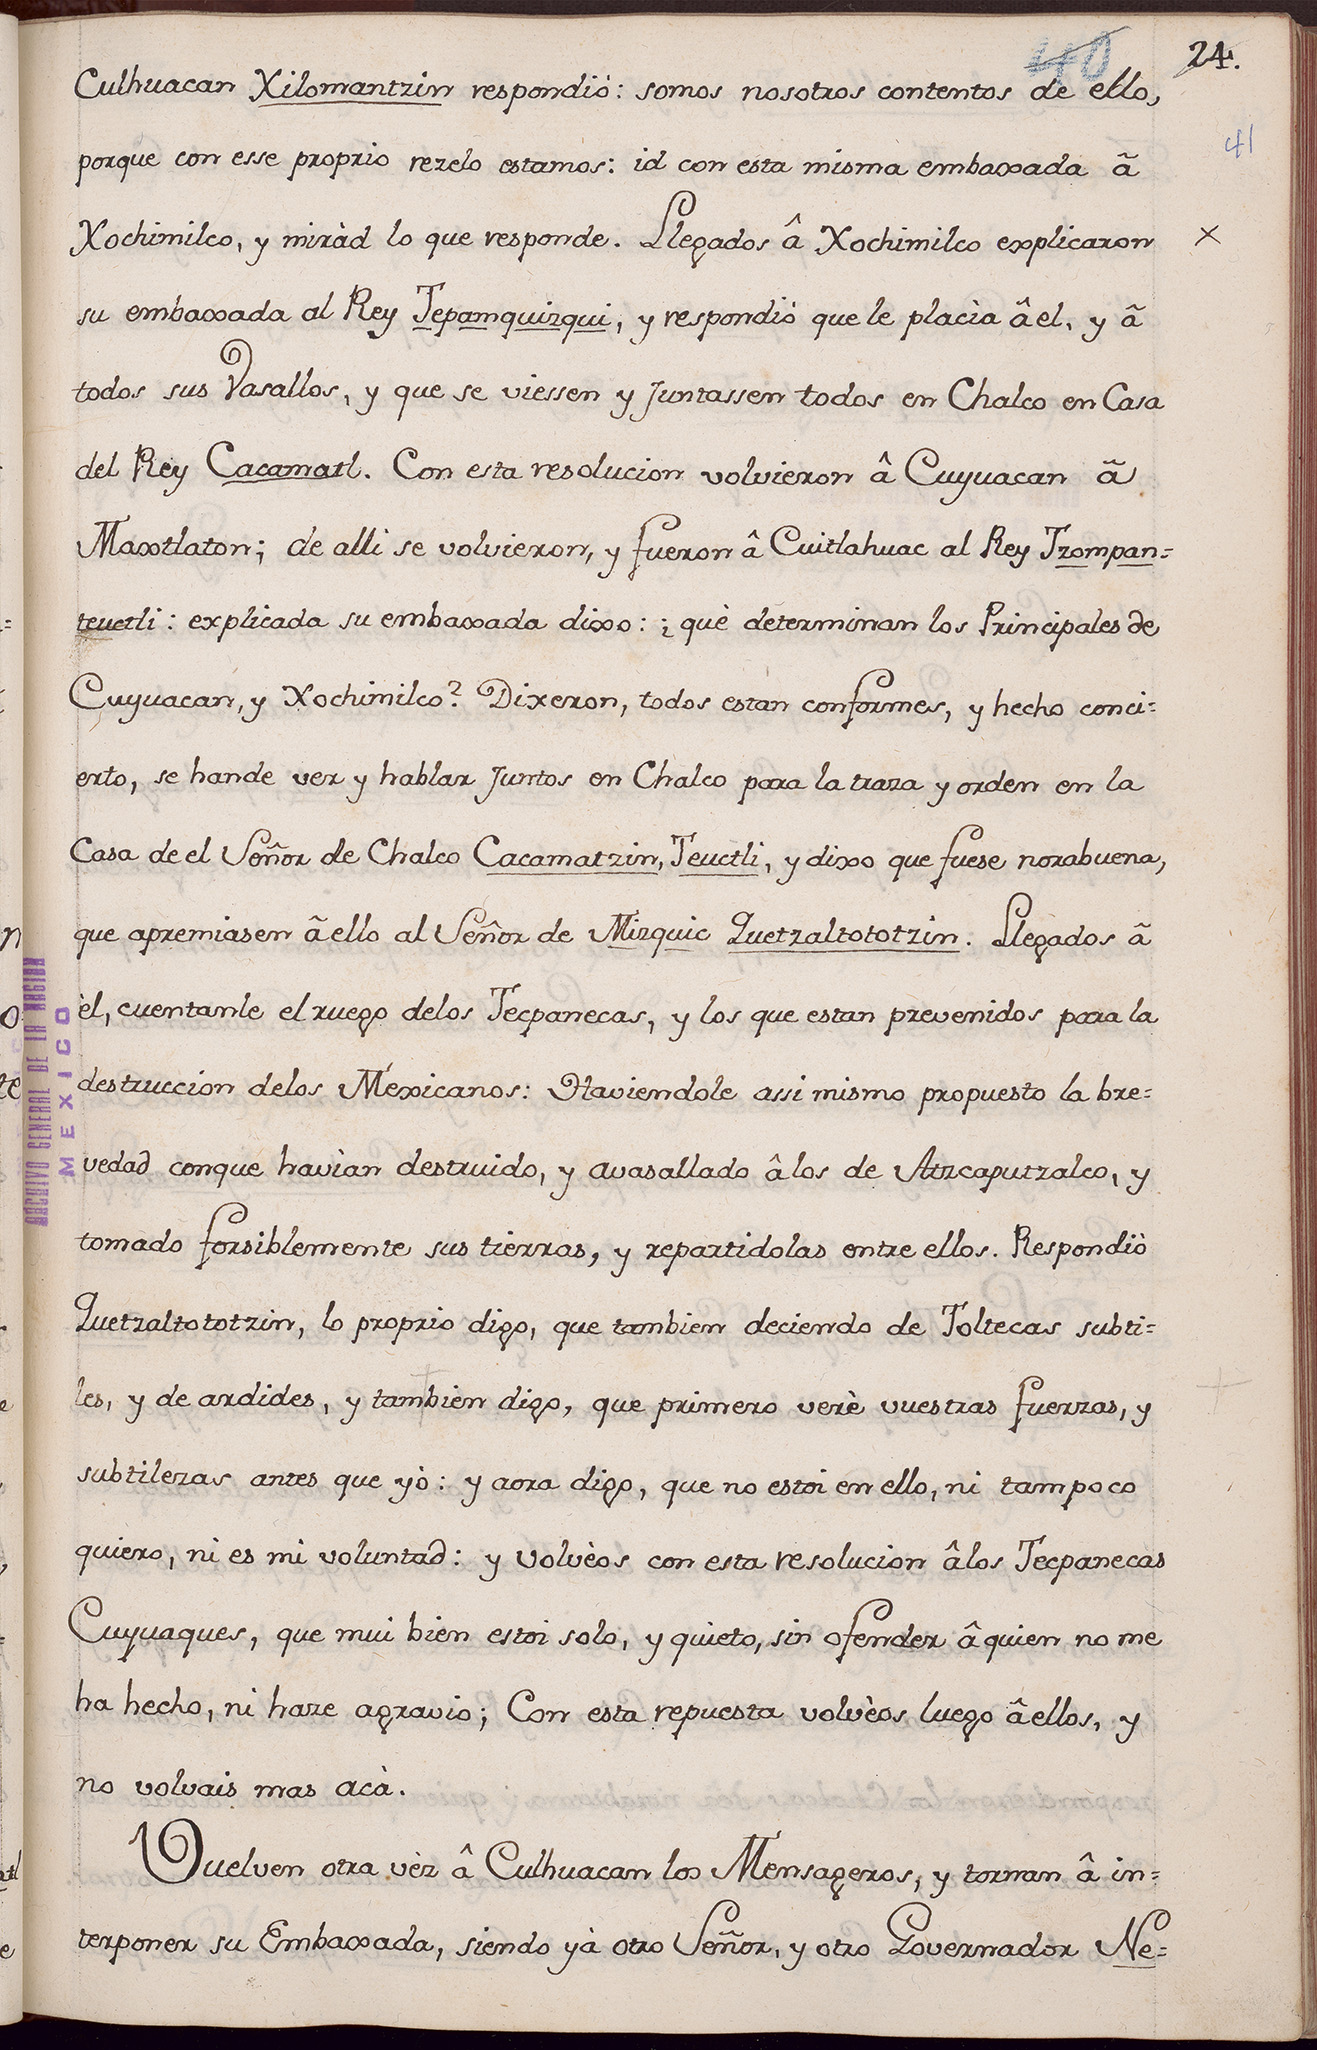 40
24.
41
Culhuacan Xilomantzin respondiò: somos nosotros contentos de ello,
porque con esse proprio rezelo estamos: id con esta misma embaxada ã
Xochimilco, y miràd lo que responde. Llegados â Xochimilco explicaron
su embaxada al Rey Tepamquizqui, y respondiò que le placìa â el, y ã
todos sus Vasallos, y que se viessen y juntassen todos en Chalco en Casa
del Rey Cacamatl. Con esta resolucion volvieron â Cuyuacan ã
Maxtlaton; de alli se volvieron, y fueron â Cuitlahuac al Rey Tzompan=
teuctli: explicada su embaxada dixo: ¿què determinan los Principales de
Cuyuacan, y Xochimilco? Dixeron, todos estan conformes, y hecho conci=
erto, se hande ver y hablar juntos en Chalco para la traza y orden en la
Casa de el Señor de Chalco Cacamatzin, Teuctli, y dixo que fuese norabuena,
que apremiasen ã ello al Señor de Mizquic Quetzaltototzin. Llegados ã
èl, cuentanle el ruego delos Tecpanecas, y los que estan prevenidos para la
destruccion delos Mexicanos: Haviendole assi mismo propuesto la bre=
vedad conque havìan destruido, y avasallado â los de Atzcaputzalco, y
tomado forsiblemente sus tierras, y repartidolas entre ellos. Respondiò
Quetzaltototzin, lo proprio digo, que tambien deciendo de Toltecas subti=
les, y de ardides, y tambien digo, que primero verè vuestras fuerzas, y
subtilezas antes que yò: y aora digo, que no estoi en ello, ni tampoco
quiero, ni es mi voluntad: y volvèos con esta resolucion â los Tecpanecas
Cuyuaques, que mui bien estoi solo, y quieto, sin ofender â quien no me
ha hecho, ni haze agravio; Con esta repuesta volvèos luego â ellos, y
no volvais mas acà.
Vuelven otra vèz â Culhuacan los Mensageros, y tornan â in=
terponer su Embaxada, siendo yà otro Señor, y otro Governador Ne=
ARCHIVO GENERAL DE LA NACION
MEXICO